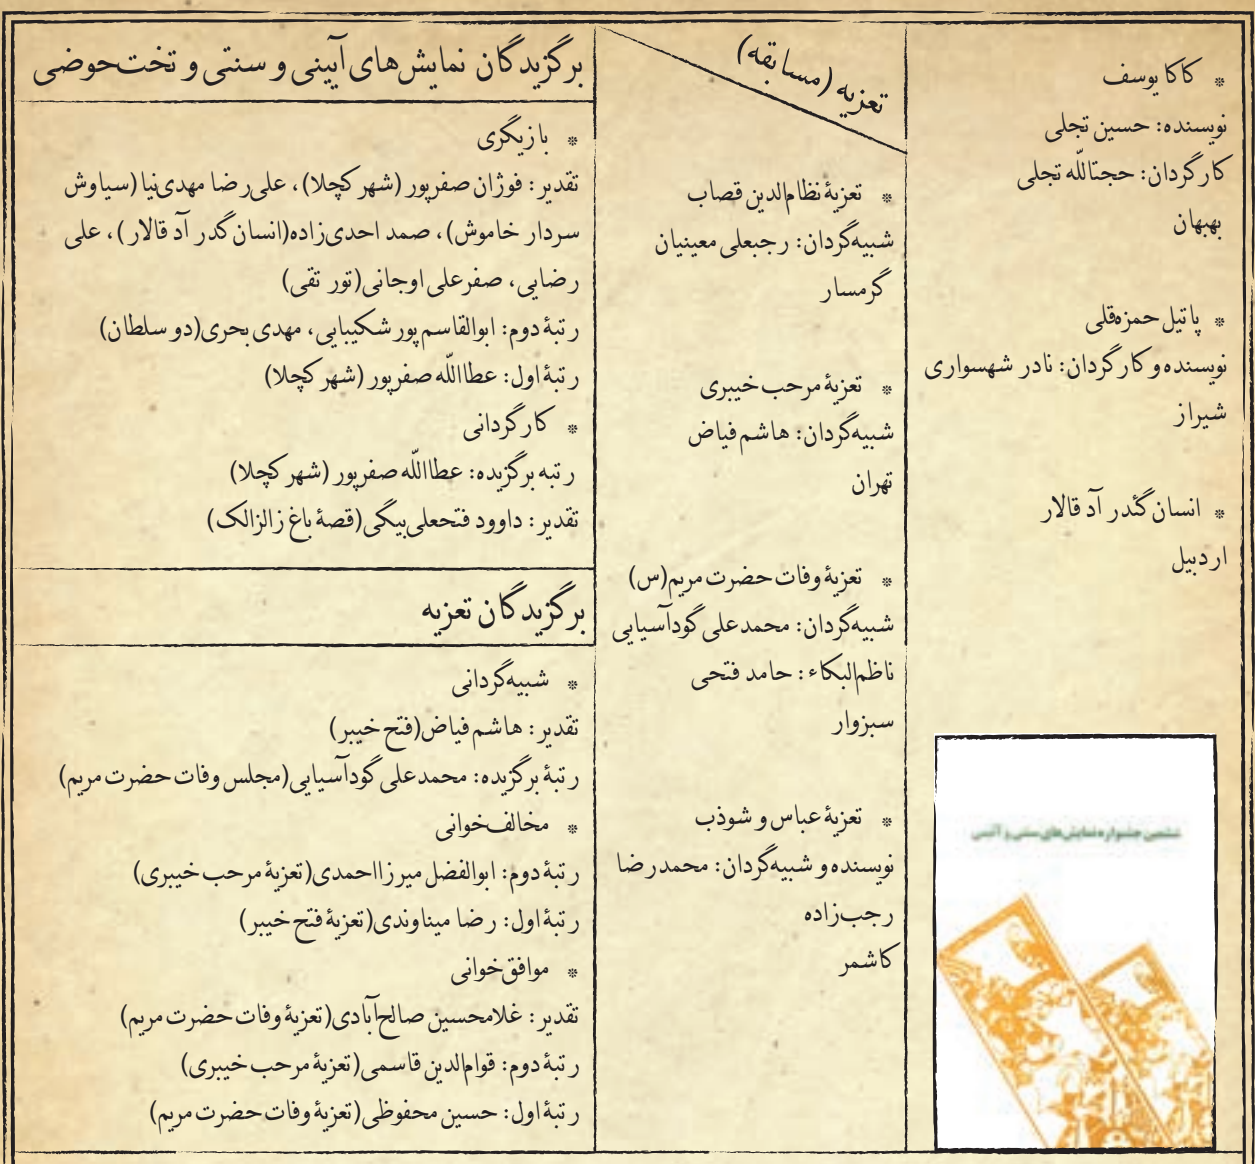 * کاکا یوسف
نویسنده: حسین تجلی
کارگردان: حجت‌اللّه تجلی
بهبهان
* پاتیل حمزه‌قلی
نویسنده و کارگردان: نادر شهسواری
شیراز
* انسان گئدر آد قالار
اردبیل
ششمین جشنواره نمایش‌های سنتی و آئینی
تعزیه (مسابقه)
* تعزیهٔ نظام‌الدین قصاب
شبیه‌گردان: رجبعلی معینیان
گرمسار
* تعزیهٔ مرحب خیبری
شبیه‌گردان: هاشم فیاض
تهران
* تعزیهٔ وفات حضرت مریم(س)
شبیه‌گردان: محمدعلی گودآسیایی
ناظم‌البکاء: حامد فتحی
سبزوار
* تعزیهٔ عباس و شوذب
نویسنده و شبیه‌گردان: محمدرضا
رجب‌زاده
کاشمر
برگزیدگان نمایش‌های آیینی و سنتی و تخت‌حوضی
* بازیگری
تقدیر: فوژان صفرپور (شهر کچلا)، علی‌رضا مهدی‌نیا (سیاوش
سردار خاموش)، صمد احدی‌زاده(انسان گدر آد قالار)، علی
رضایی، صفرعلی اوجانی(تور تقی)
رتبهٔ دوم: ابوالقاسم پور شکیبایی، مهدی بحری(دو سلطان)
رتبهٔ اول: عطااللّه صفرپور (شهر کچلا)
* کارگردانی
رتبه برگزیده: عطااللّه صفرپور (شهر کچلا)
تقدیر: داوود فتحعلی‌بیگی(قصهٔ باغ زالزالک)
برگزیدگان تعزیه
* شبیه‌گردانی
تقدیر: هاشم فیاض(فتح خیبر)
رتبهٔ برگزیده: محمدعلی گودآسیایی(مجلس وفات حضرت مریم)
* مخالف‌خوانی
رتبهٔ دوم: ابوالفضل میرزااحمدی(تعزیهٔ مرحب خیبری)
رتبهٔ اول: رضا میناوندی(تعزیهٔ فتح خیبر)
* موافق‌خوانی
تقدیر: غلامحسین صالح‌آبادی(تعزیهٔ وفات حضرت مریم)
رتبهٔ دوم: قوام‌الدین قاسمی(تعزیهٔ مرحب خیبری)
رتبهٔ اول: حسین محفوظی(تعزیهٔ وفات حضرت مریم)